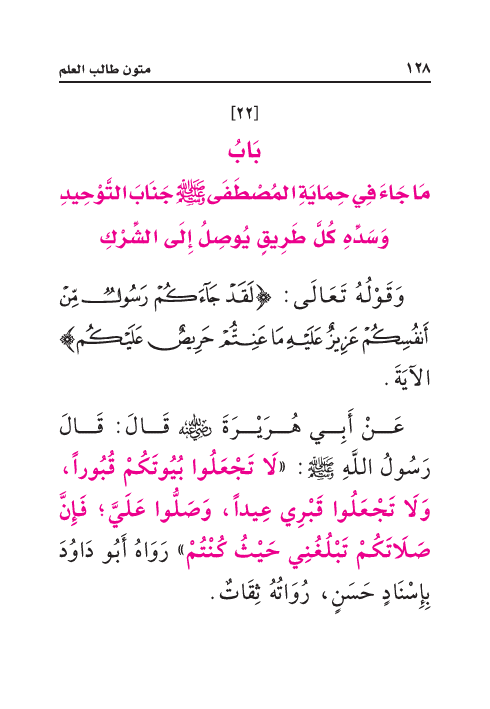 ١٢٨ متون طالب العلم
[٢٢]
بَابُ
مَا جَاءَ فِي حِمَايَةِ المُصْطَفَى ﷺ جَنَابَ التَّوْحِيدِ
وَسَدِّهِ كُلَّ طَرِيقٍ يُوصِلُ إِلَى الشِّرْكِ
وَقَوْلُهُ تَعَالَى: ﴿لَقَدْ جَآءَكُمْ رَسُولٌ مِّنْ
أَنفُسِكُمْ عَزِيزٌ عَلَيْهِ مَا عَنِتُّمْ حَرِيصٌ عَلَيْكُم﴾
الآيَةَ.
عَنْ أَبِي هُرَيْرَةَ رضي الله عنه قَالَ: قَالَ
رَسُولُ اللَّهِ ﷺ: «لَا تَجْعَلُوا بُيُوتَكُمْ قُبُوراً،
وَلَا تَجْعَلُوا قَبْرِي عِيداً، وَصَلُّوا عَلَيَّ؛ فَإِنَّ
صَلَاتَكُمْ تَبْلُغُنِي حَيْثُ كُنْتُمْ» رَوَاهُ أَبُو دَاوُدَ
بِإِسْنَادٍ حَسَنٍ، رُوَاتُهُ ثِقَاتٌ.